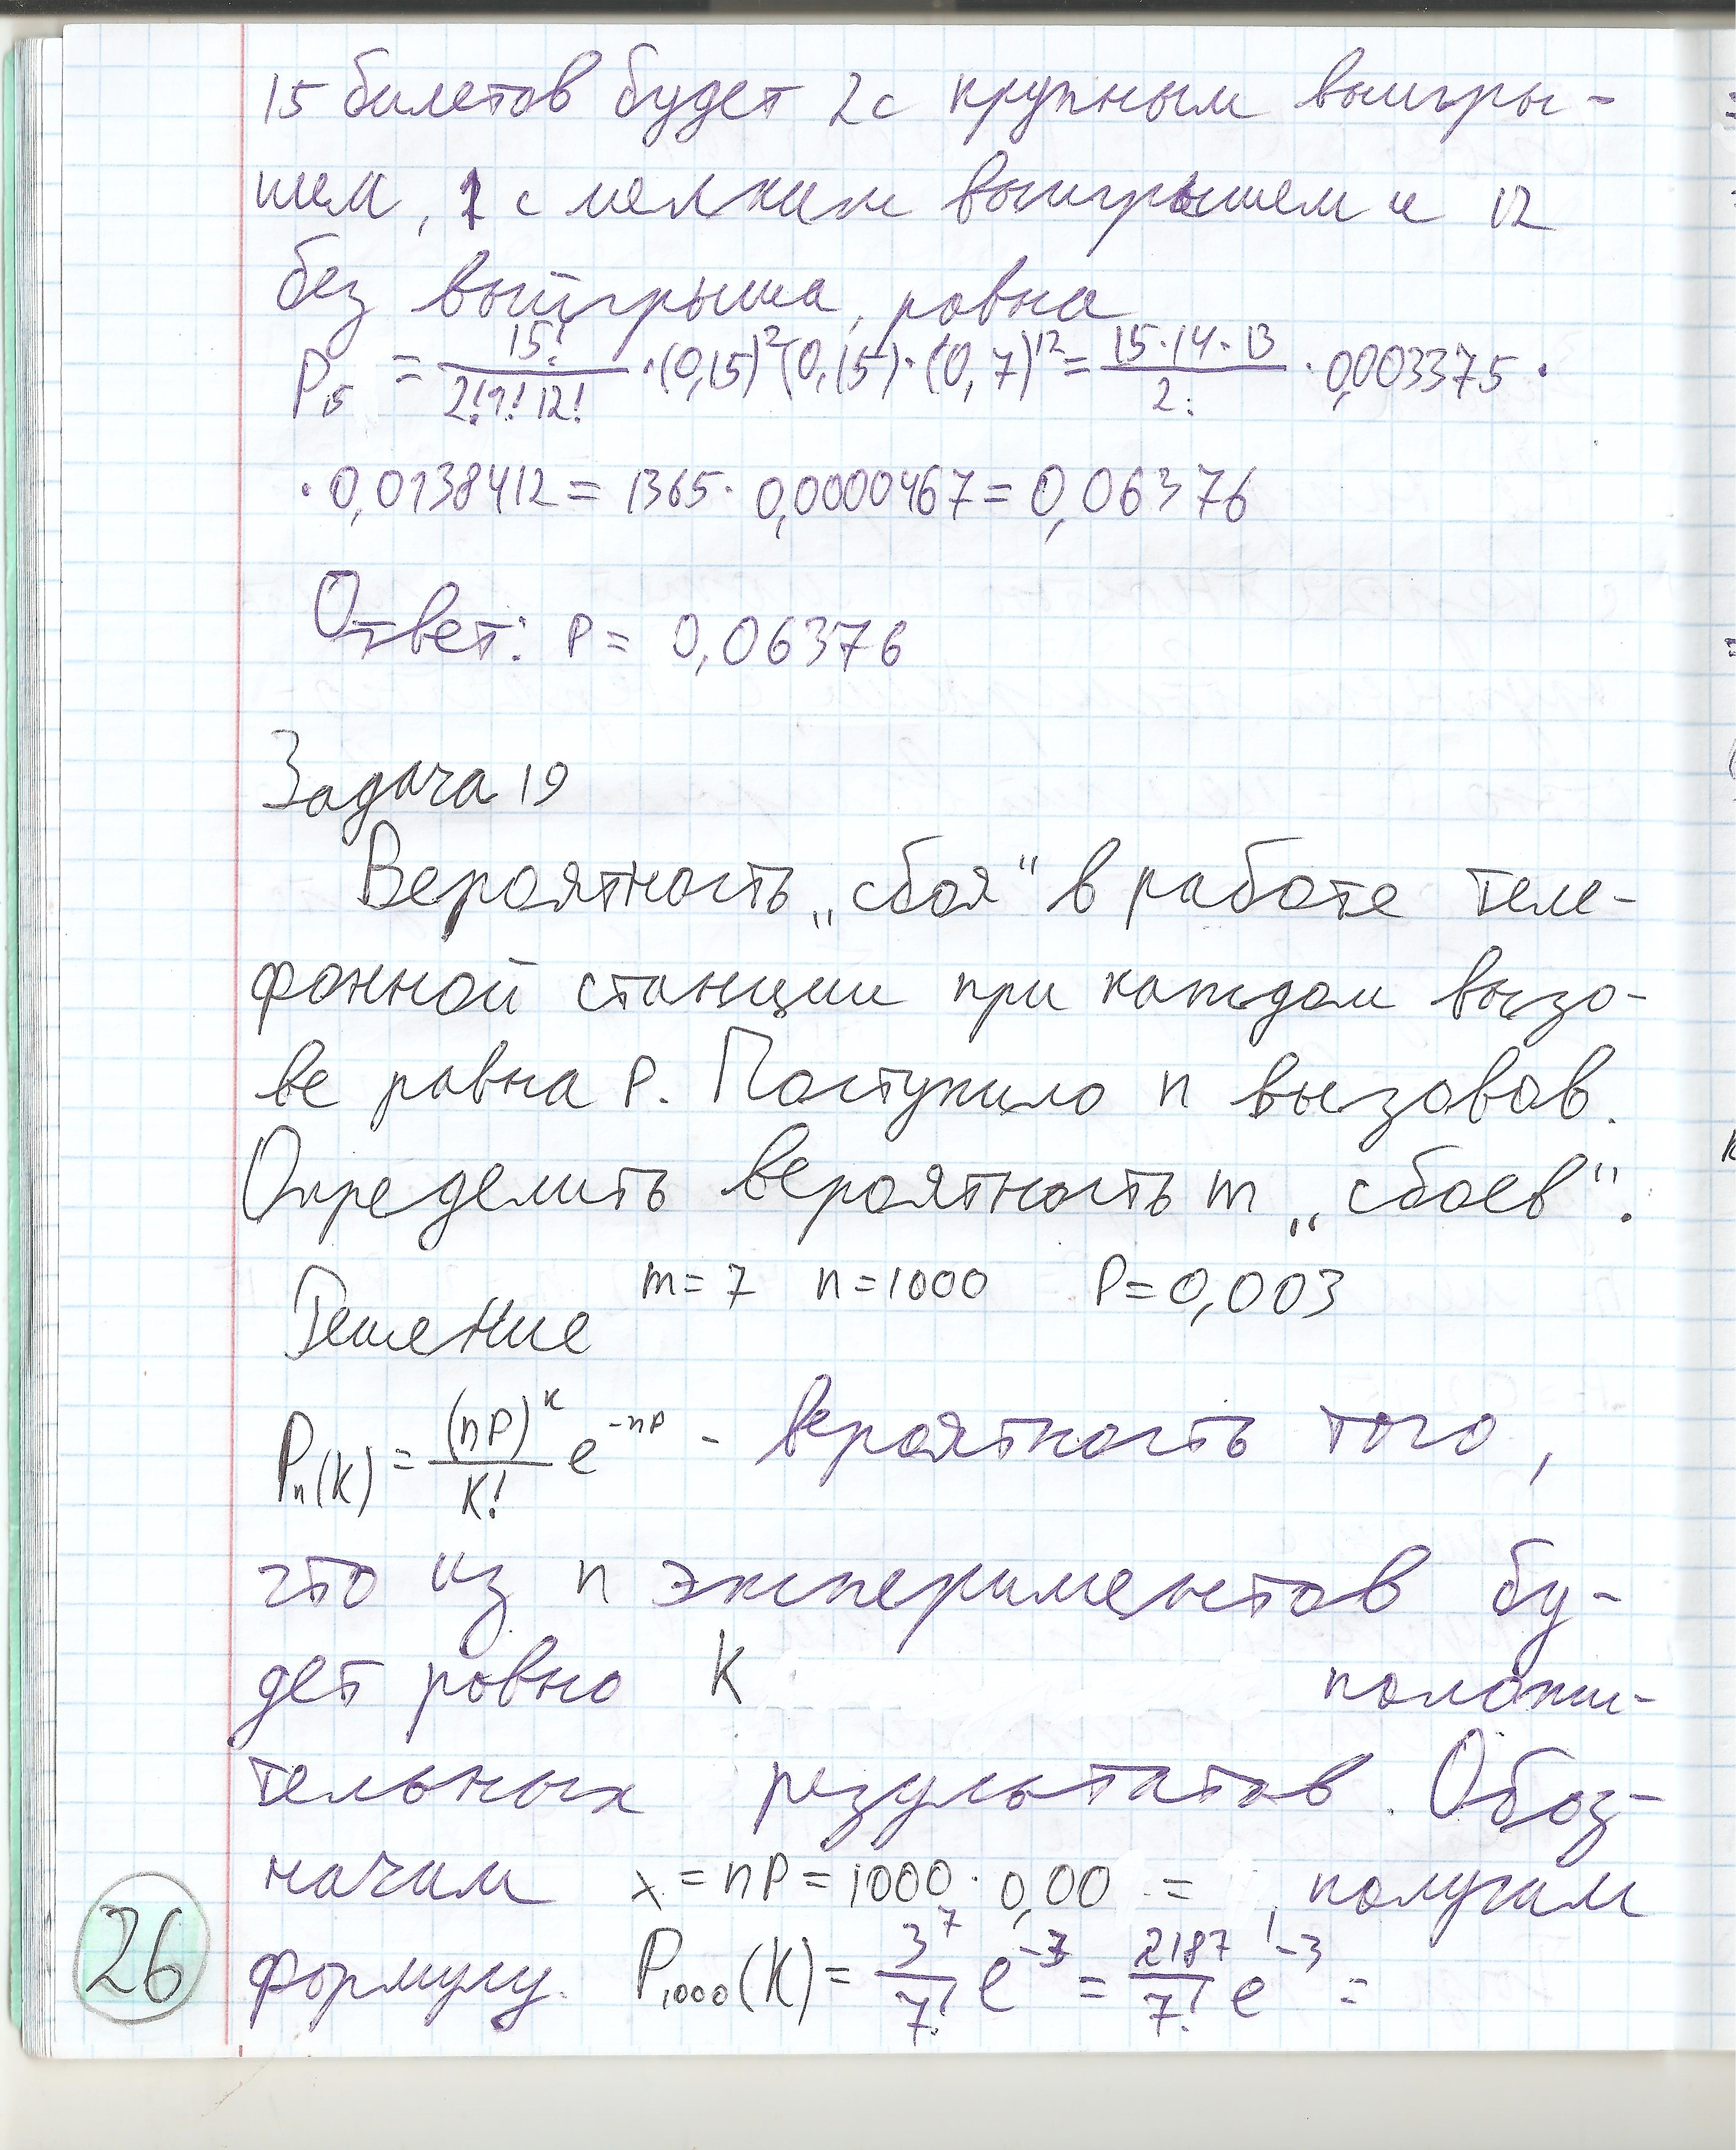 15 билетов будет 2 с крупным выигры-
шем, 1 с мелким выигрышем и 12
без выигрыша, равна
P₁₅ = 15!/(2!1!12!) · (0,15)² (0,15) · (0,7)¹² = 15·14·13/2! · 0,003375 ·
· 0,0138412 = 1365 · 0,0000467 = 0,06376
Ответ: P = 0,06376
Задача 19
Вероятность „сбоя“ в работе теле-
фонной станции при каждом вызо-
ве равна P. Поступило n вызовов.
Определить вероятность m „сбоев“.
m = 7 n = 1000 P = 0,003
Решение
Pₙ(K) = (nP)ᴷ/K! e⁻ⁿᴾ - вероятность того,
что из n экспериментов бу-
дет ровно K положи-
тельных результатов. Обоз-
начим λ = nP = 1000 · 0,00 = , получим
формулу. P₁₀₀₀(K) = 3⁷/7! e⁻³ = 2187/7! e⁻³ =
26